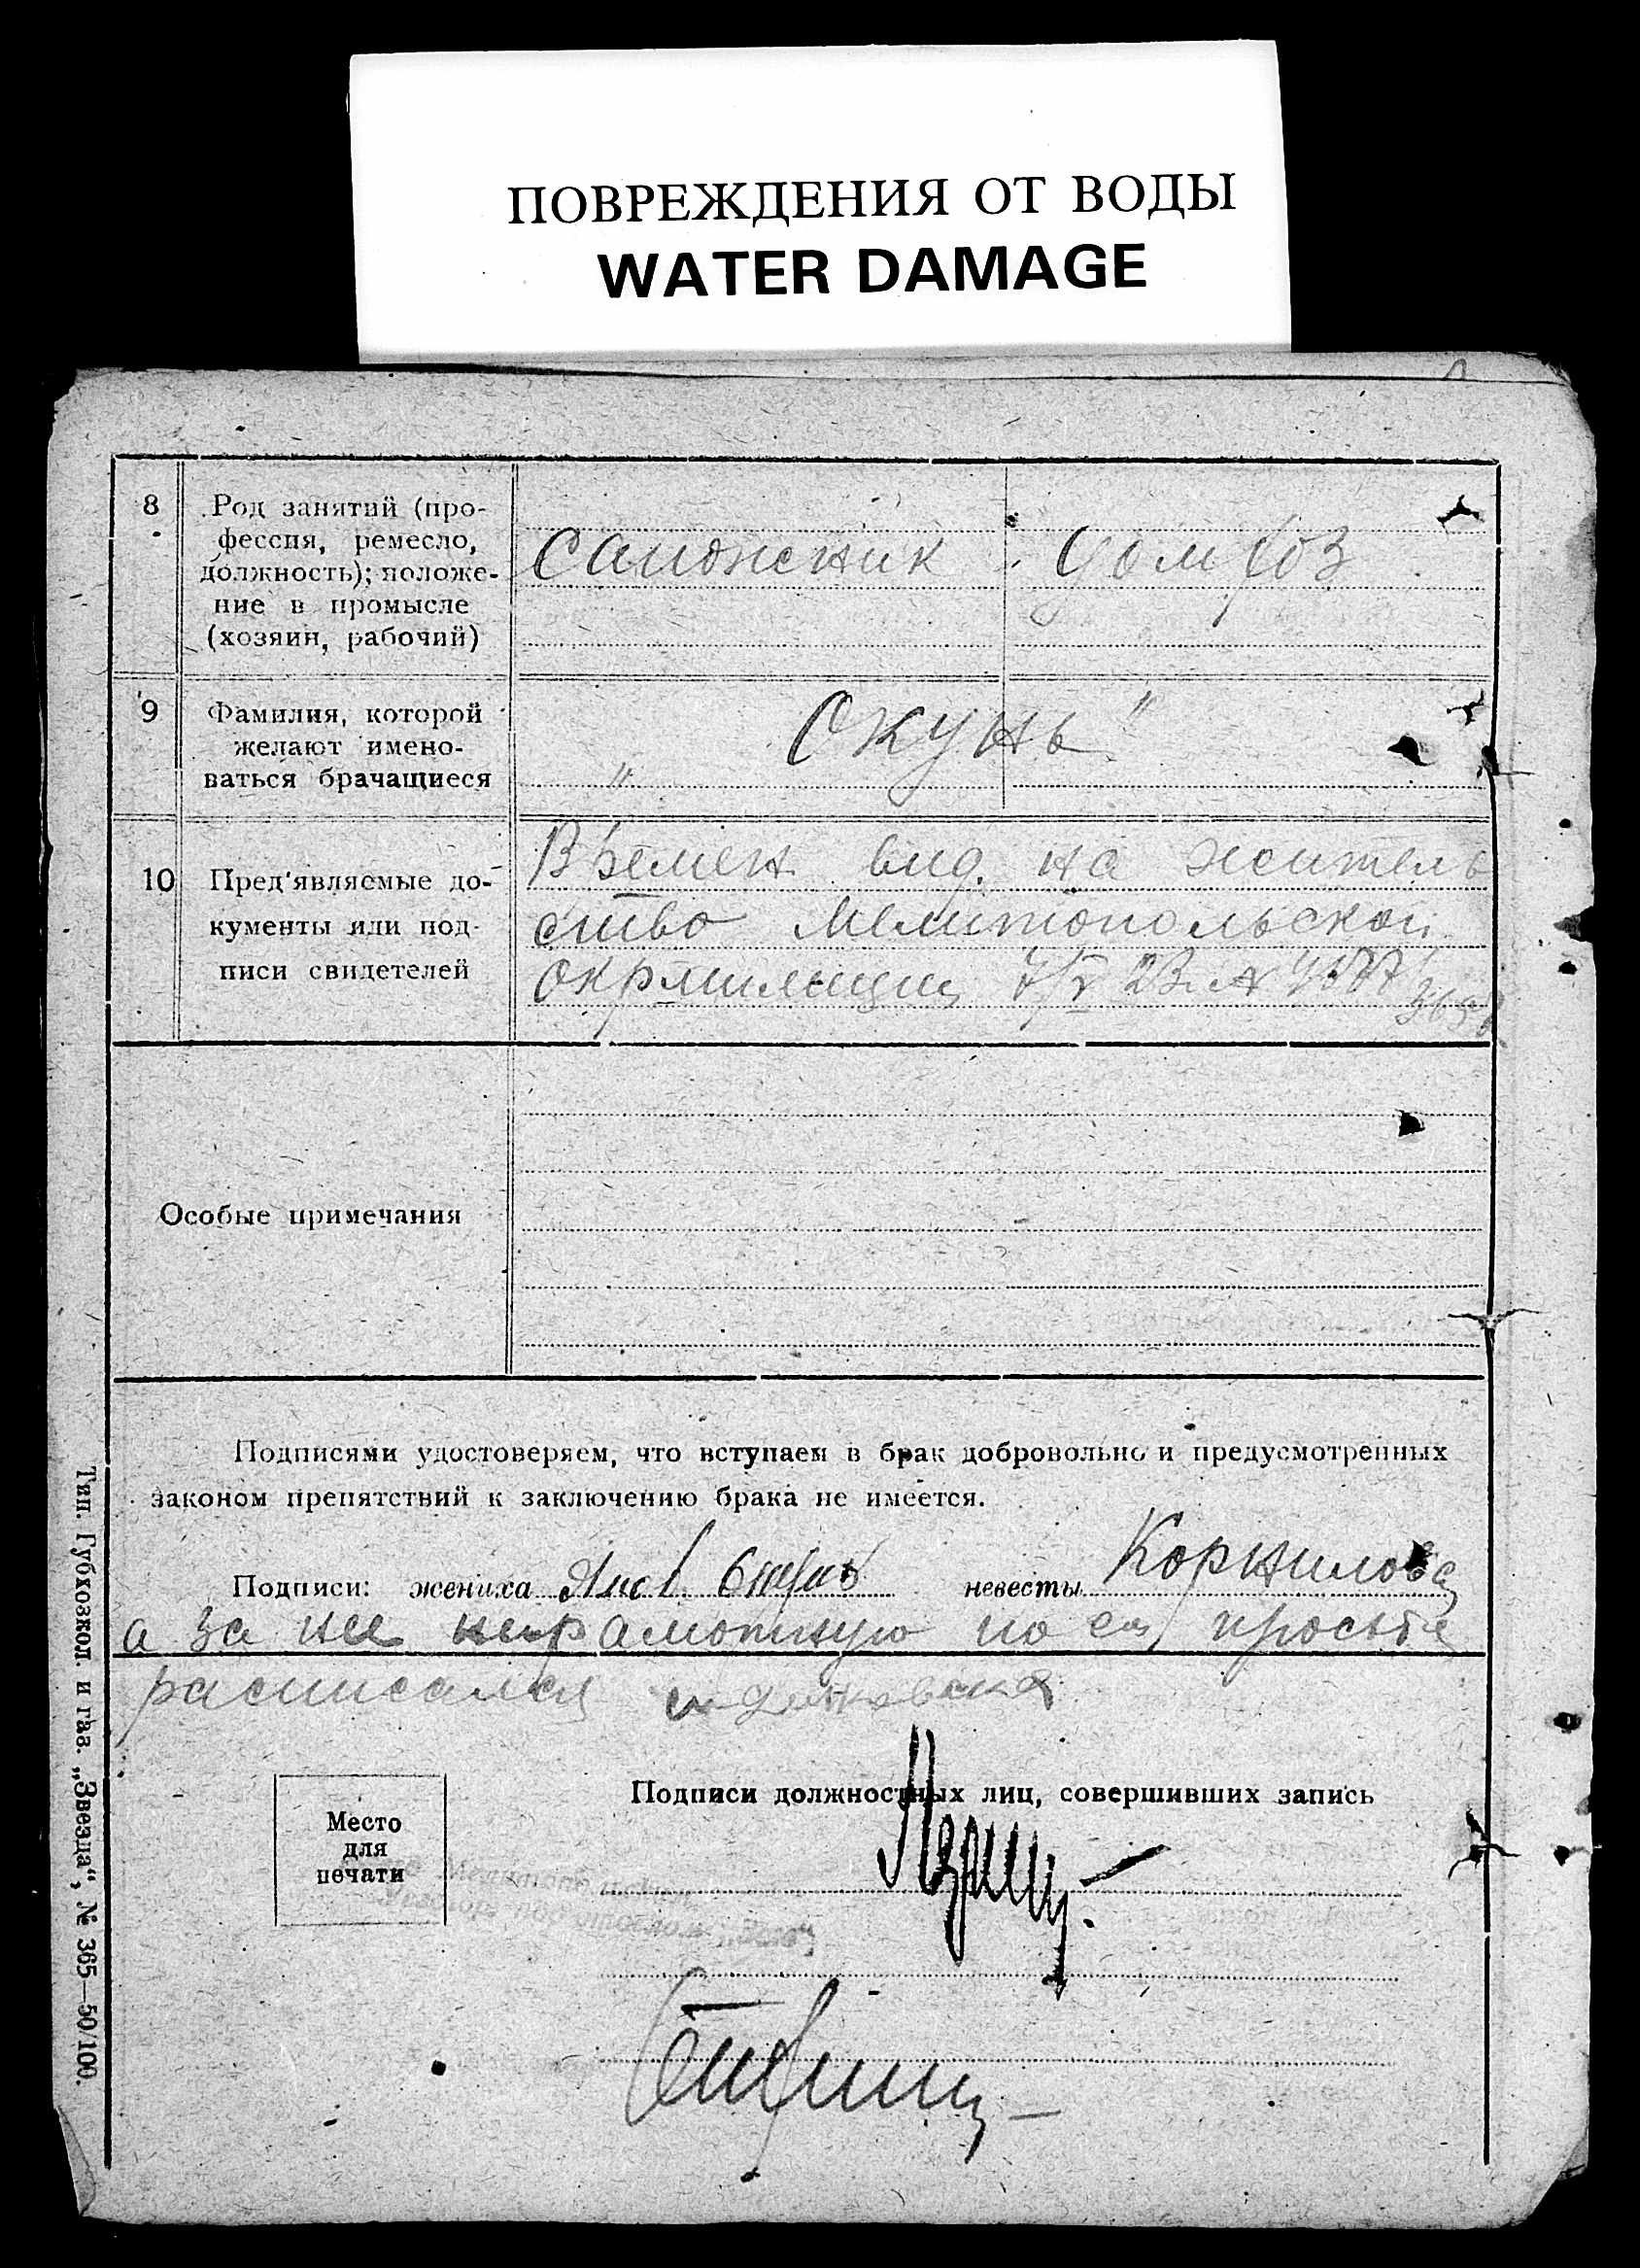 ПОВРЕЖДЕНИЯ ОТ ВОДЫ
WATER DAMAGE
8
Род занятий (про-
фессия, ремесло,
должность); положе-
ние в промысле
(хозяин, рабочий)
сапожник
домхоз
9
Фамилия, которой
желают имено-
ваться брачащиеся
„Окунь"
10
Пред'являемые до-
кументы или под-
писи свидетелей
Времен. вид. на житель
ство Мелитопольской
окрмилиции 7/V 23 г. №
Особые примечания
Подписями удостоверяем, что вступаем в брак добровольно и предусмотренных
законом препятствий к заключению брака не имеется.
Подписи: жениха невесты Корнилова
а за нее неграмотную по ея просьбе
расписался
Место
для
печати
Подписи должностных лиц, совершивших запись
Тип. Губкозкол. и газ. „Звезда", № 365—50/100.